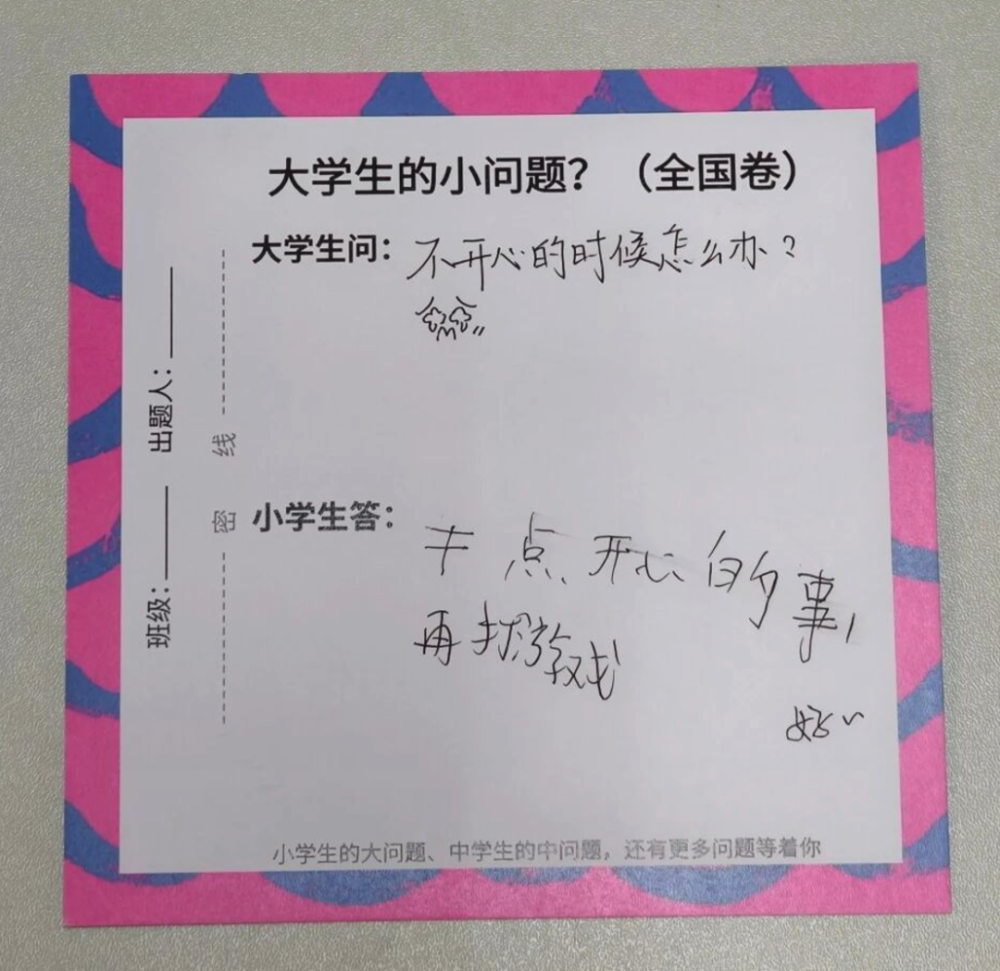 大学生的小问题？（全国卷）
大学生问：不开心的时候怎么办？
小学生答：
点开心的事，
再打游戏
好~
小学生的大问题、中学生的中问题，还有更多问题等着你
班级：____ 出题人：____
密 线